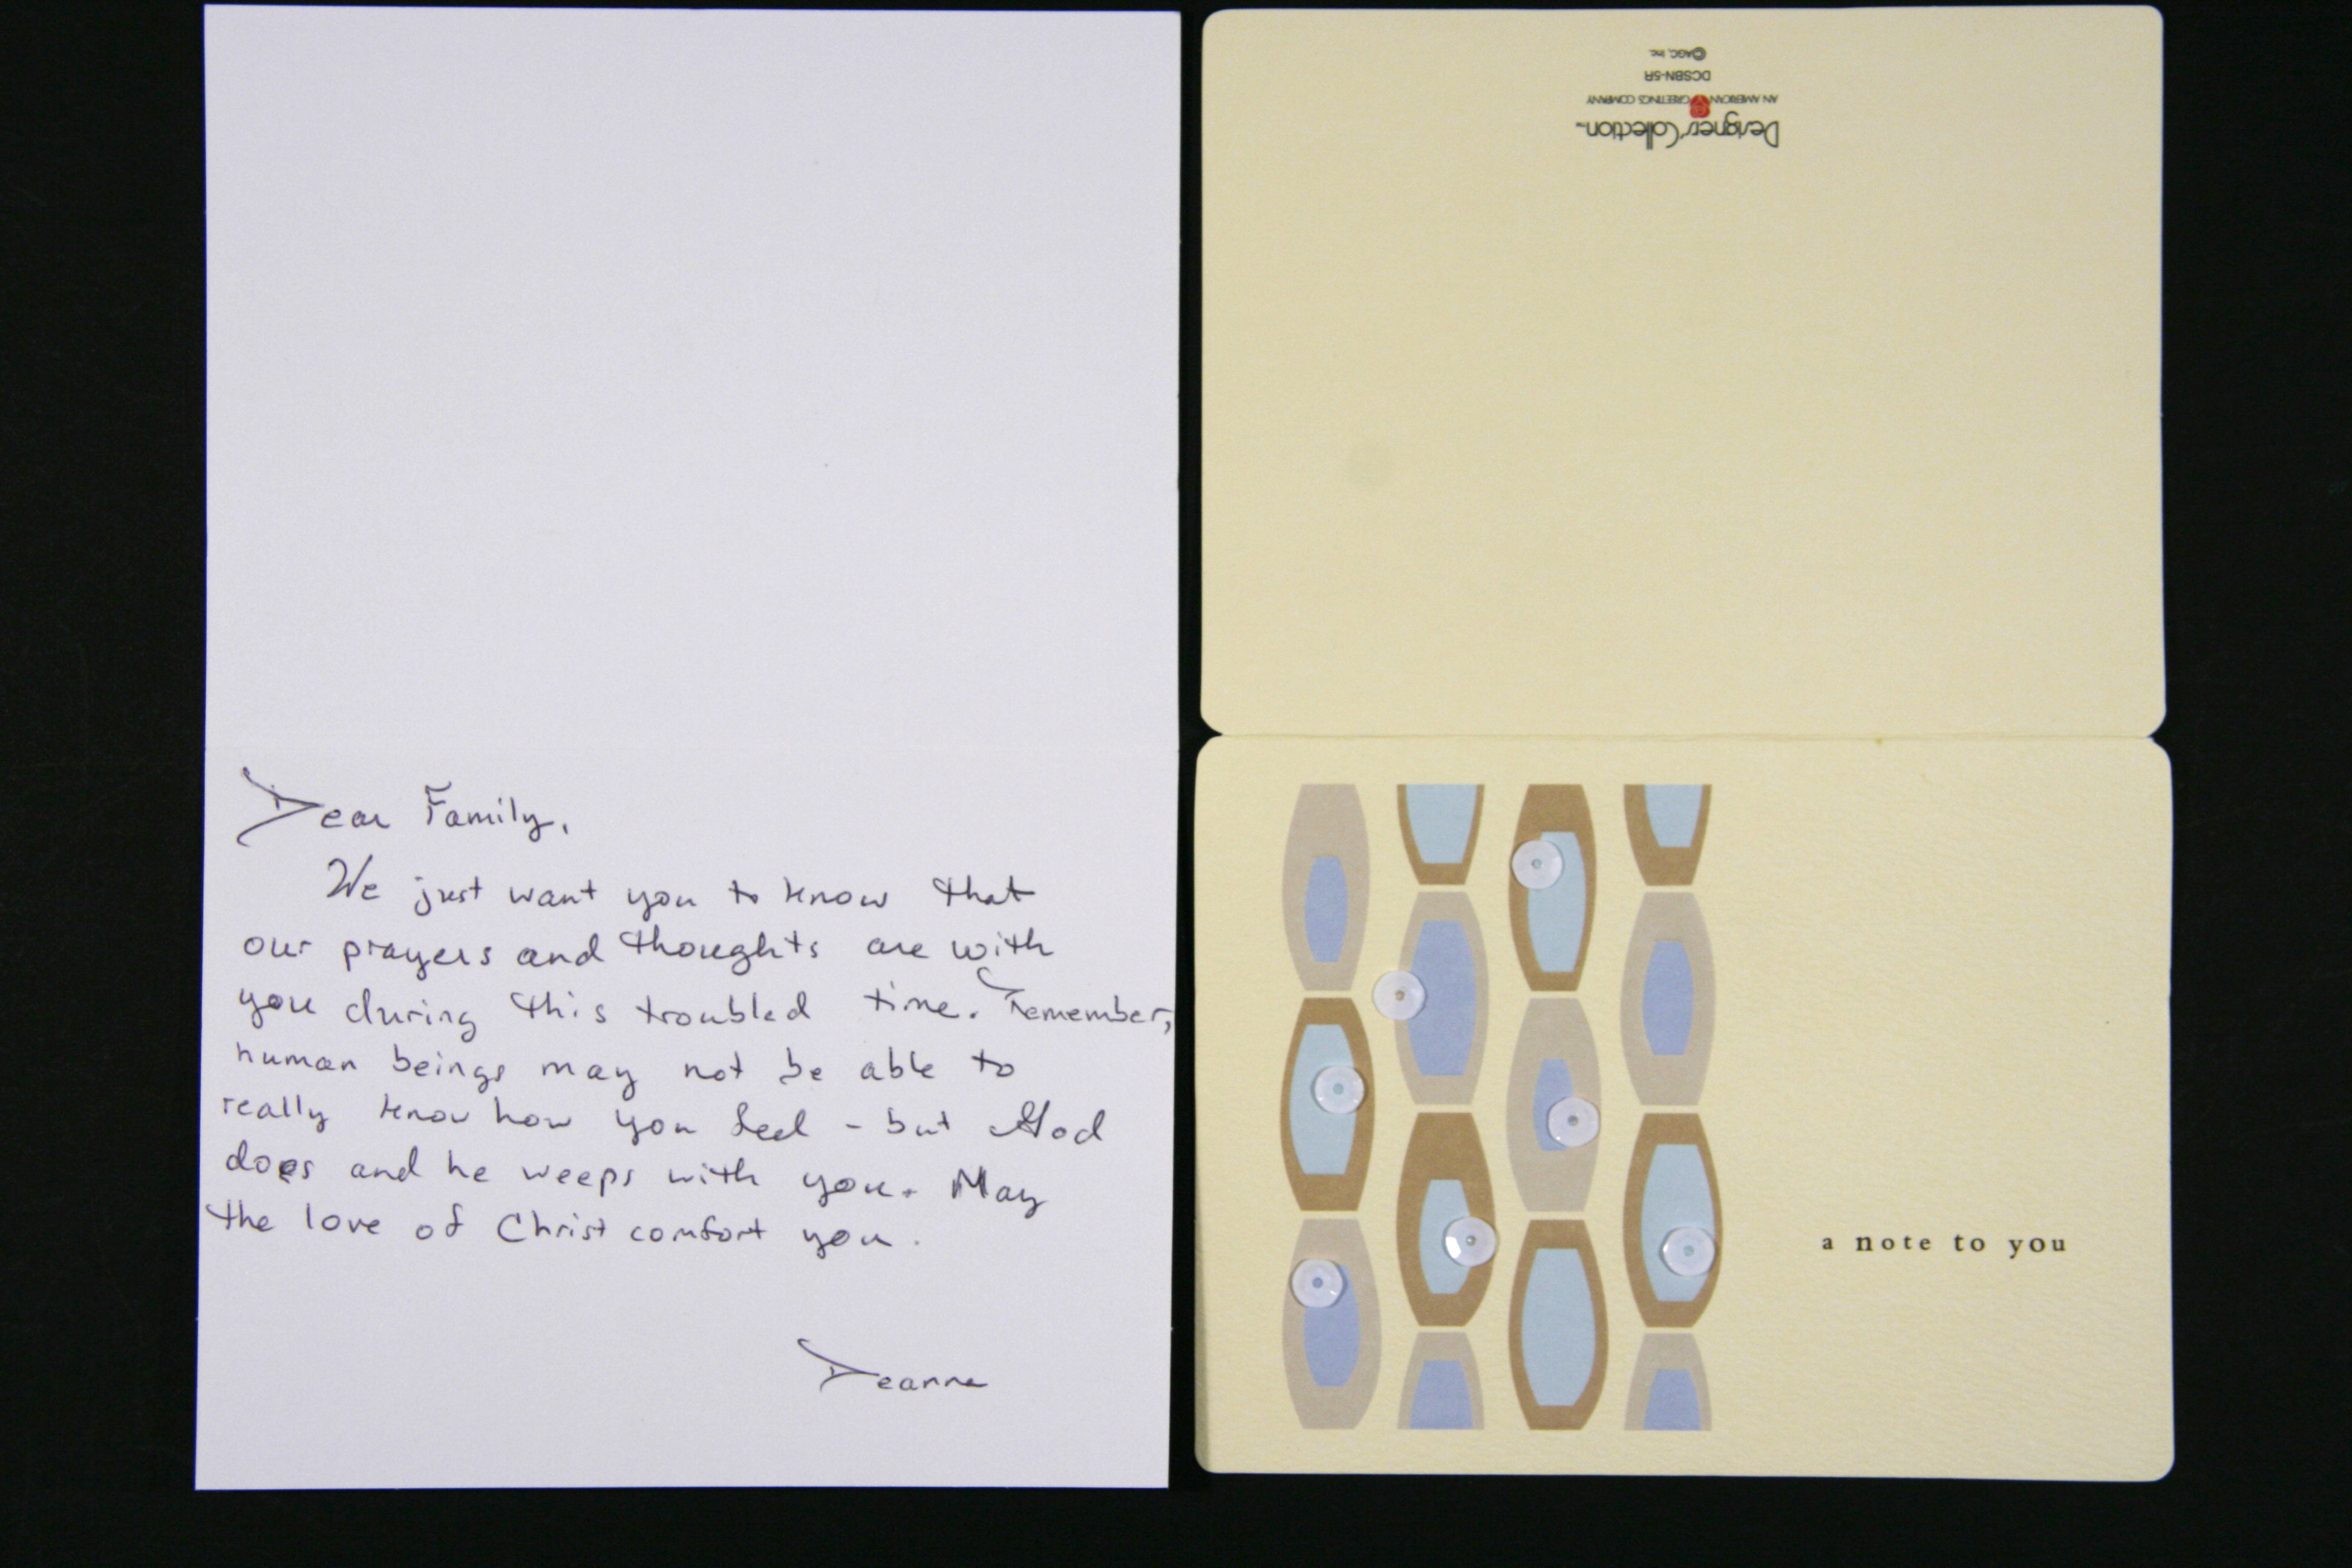 Dear Family,
We just want you to know that
our prayers and thoughts are with
you during this troubled time. Remember,
human beings may not be able to
really know how you feel - but God
does and he weeps with you. May
the love of Christ comfort you.
Deanna
Designers' Collection™
AN AMERICAN GREETINGS COMPANY
DCSBN-5R
©AGC, Inc.
a note to you